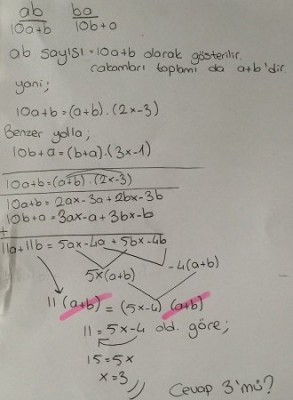 ab ba
10a+b 10b+a
ab sayısı =10a+b olarak gösterilir.
rakamları toplamı da a+b'dir.
yani;
10a+b=(a+b).(2x-3)
Benzer yolla;
10b+a=(b+a).(3x-1)
10a+b=(a+b).(2x-3)
10a+b=2ax-3a+2bx-3b
10b+a=3ax-a+3bx-b
+
11a+11b=5ax-4a+5bx-4b
5x(a+b) -4(a+b)
11(a+b)=(5x-4)(a+b)
11=5x-4 old. göre;
15=5x
x=3
Cevap 3'mü?